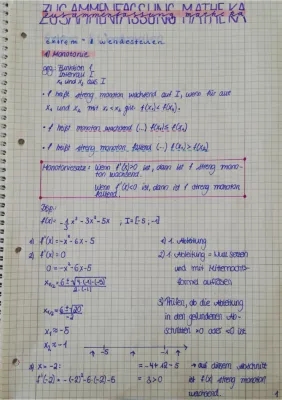 ZUSAMMENFASSUNG MATHEKA
zusammenfassung matheka
extrem- & wendestellen
1) Monotonie
geg: Funktion f
Intervall I
x₁ und x₂ aus I
• f heißt streng monoton wachsend auf I, wenn für alle
x₁ und x₂ mit x₁ < x₂ gilt f(x₁) < f(x₂).
• f heißt monoton wachsend (...) f(x₁) ≤ f(x₂)
• f heißt streng monoton fallend (...) f(x₁) > f(x₂)
Monotoniesatz: Wenn f'(x)>0 ist, dann ist f streng mono-
ton wachsend.
Wenn f'(x)<0 ist, dann ist f streng monoton
fallend.
Bsp.:
f(x) = -1/3 x³ - 3x² - 5x , I = [-5; -1]
1) f'(x) = -x² - 6x - 5 1) 1. Ableitung
2) f'(x) = 0 2) 1. Ableitung = Null setzen
0 = -x² - 6x - 5 und mit Mitternachts-
formel auflösen
x₁ = -5
x₂ = -1
3) Prüfen, ob die Ableitung
in den gefundenen Ab-
schnitten >0 oder <0 ist
-5 -1
3) x = -2: = -4 + 12 - 5 → auf diesem Abschnitt
f'(-2) = -(-2)² - 6·(-2) - 5 = 3 > 0 ist f(x) streng monoton
wachsend.
1